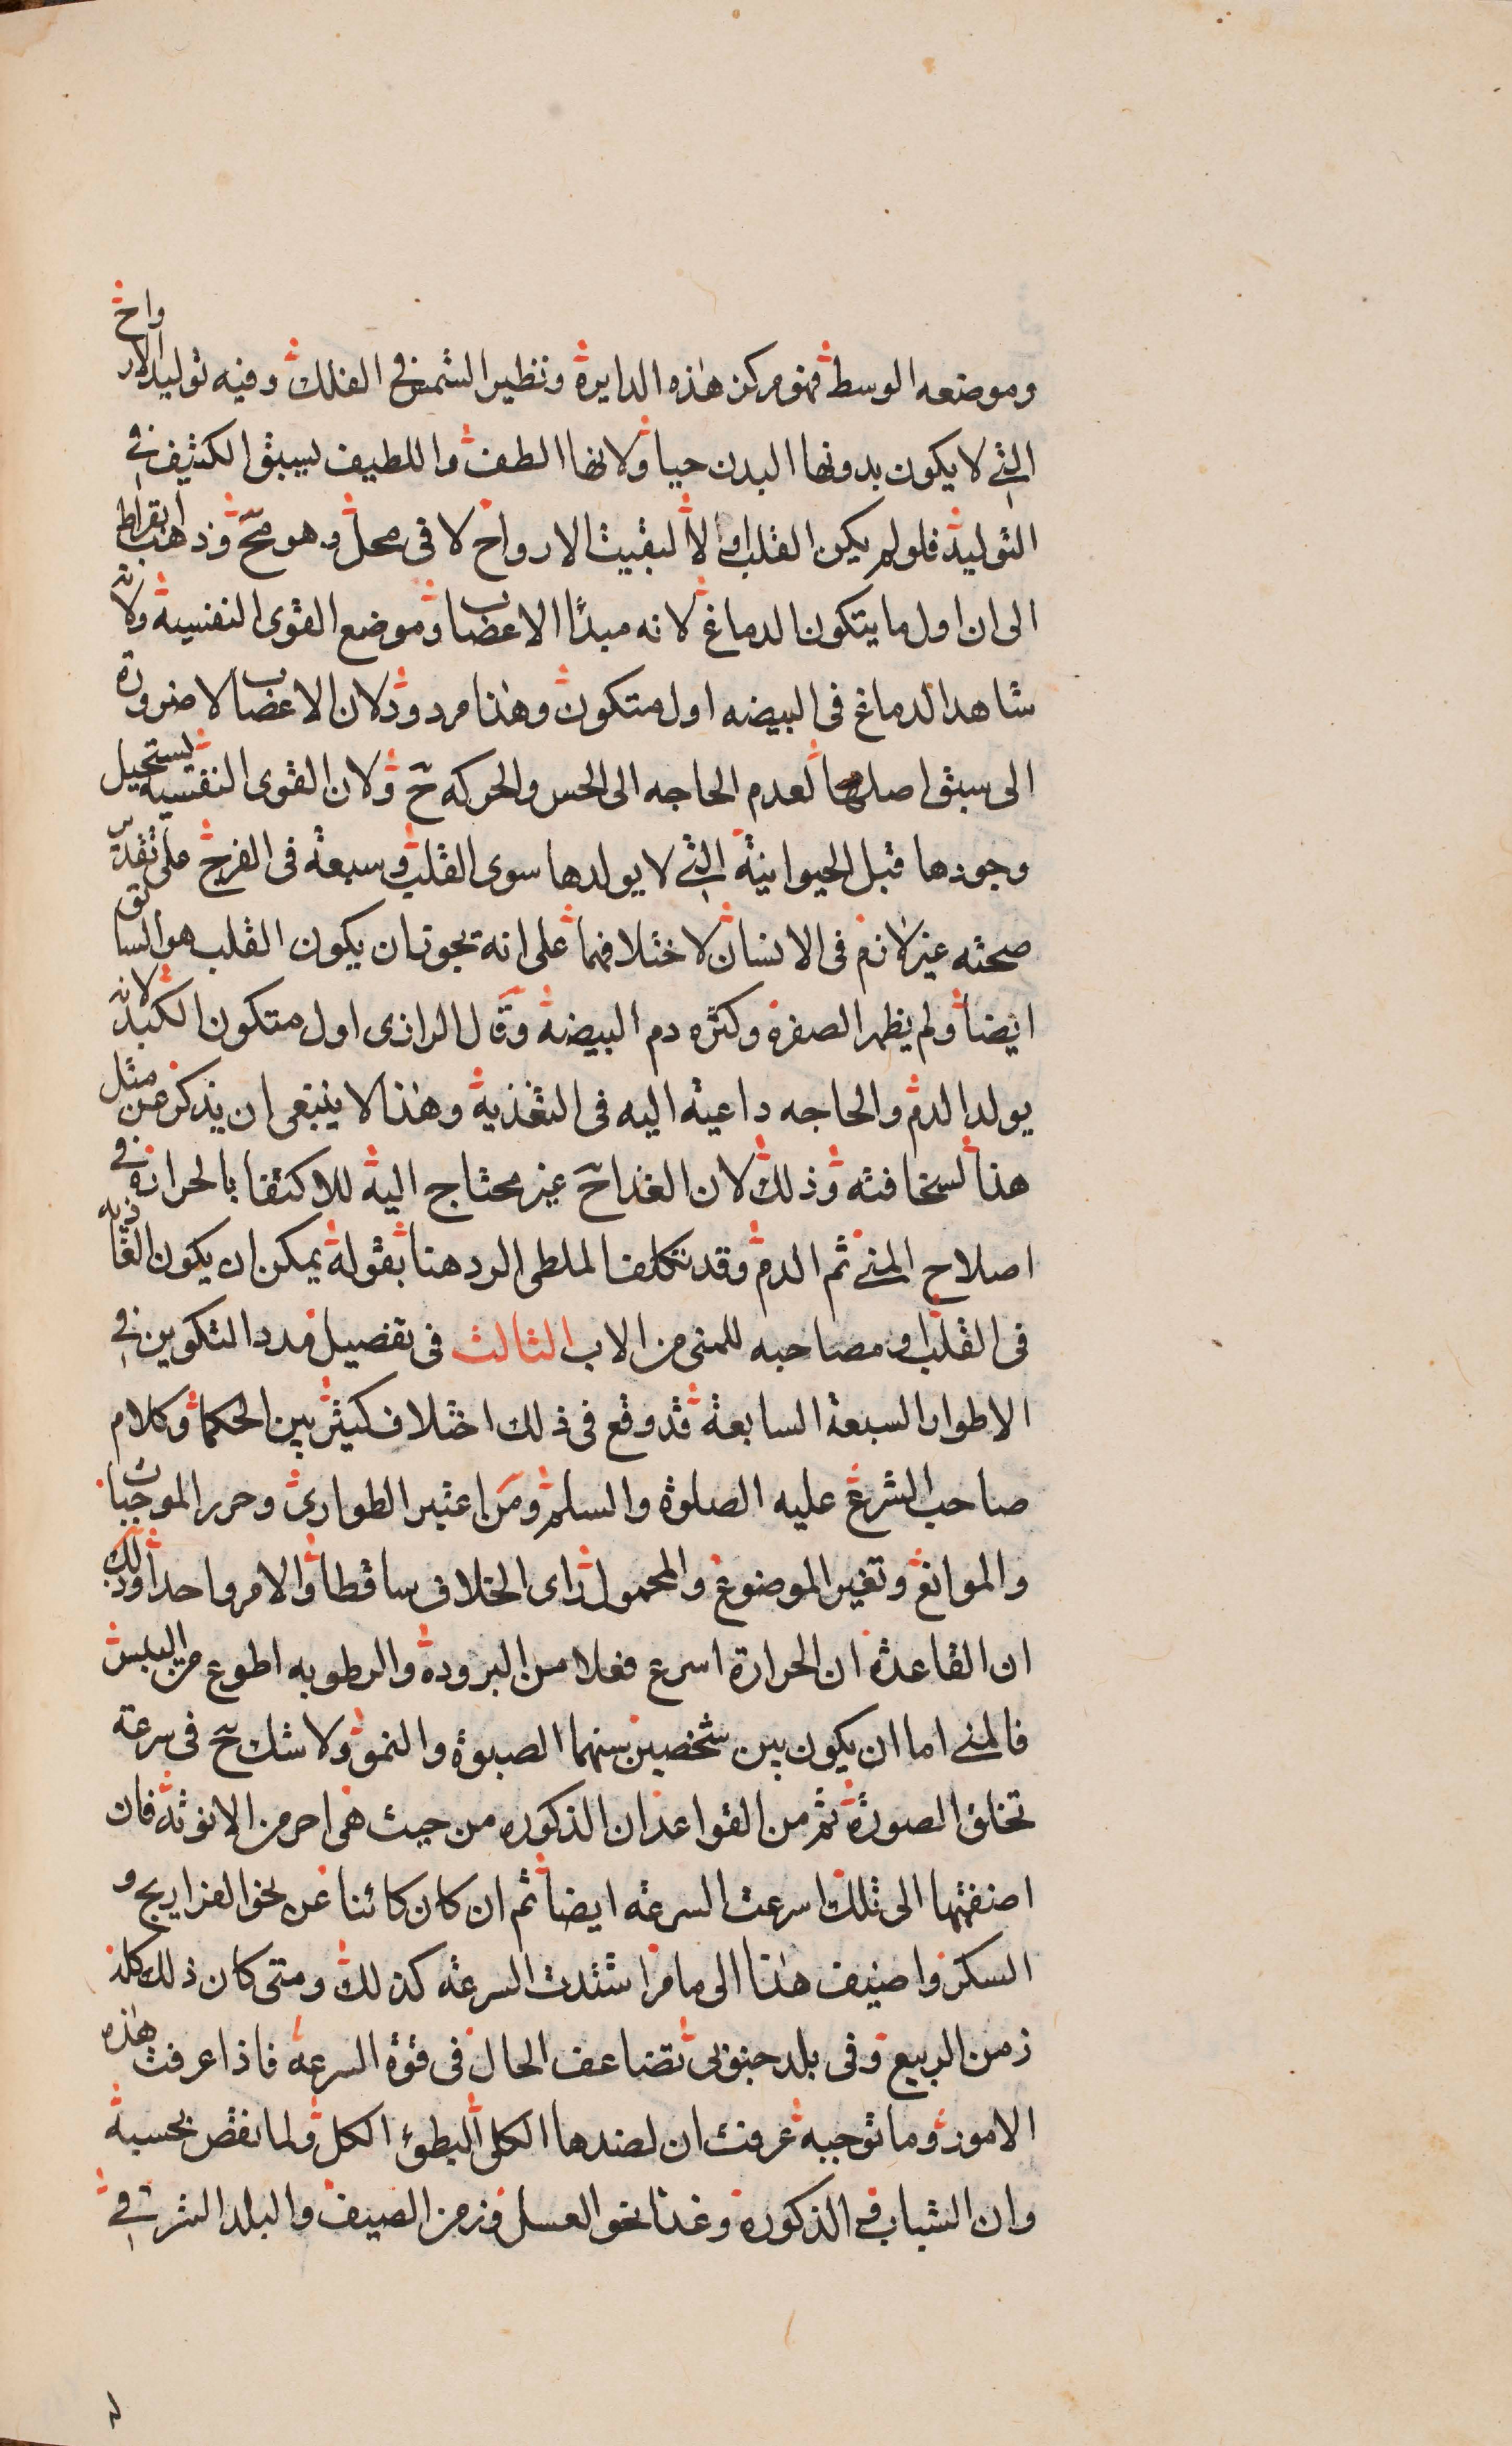 وموضعه الوسط فهو مركز هذه الدايرة ونظير الشمس في الفلك وفيه توليد الارواح
التي لا يكون بدونها البدن حيا ولانها الطف واللطيف يسبق الكثيف في
التوليد فلو لم يكن القلب اولا لبقيت الارواح لا فى محل وهو مح وذهب ابقراط
الى ان اول ما يتكون الدماغ لانه مبدًا الاعصاب وموضع القوى النفسية ولانه
شاهد الدماغ فى البيضه اول متكون وهذا مردود لان الاعصاب لا ضرورة
الى سبق اصلها لعدم الحاجه الى الحس والحركه ح ولان القوى النفسية يستحيل
وجودها قبل الحيوانية التي لا يولدها سوى القلب وسبعة فى الفرخ على تقدير
صحته غير لازم فى الانسان لاختلافهما على انه يجوز ان يكون القلب هو السابق
ايضا ولم يظهر الصفرة وكثره دم البيضة وقال الرازى اول متكون الكبد لانه
يولد الدم والحاجه داعية اليه فى التغذية وهذا لا ينبغى ان يذكر عن مثل
هذا لسخافته وذلك لان الغذا ح غير محتاج اليه للاكتفا بالحرارة في
اصلاح المني ثم الدم وقد تكلف الملطى الرد هنا بقوله يمكن ان يكون الغاذيه
فى القلب او مصاحبه للمنى من الاب الثالث فى تفصيل مدد التكوين في
الاطوار السبعة السابعة قد وقع فى ذلك اختلاف كيثر بين الحكما وكلام
صاحب الشرع عليه الصلوة والسلم ومن اعتبر الطوارى وحرر الموجبات
والموانع وتغير الموضوع والمحمول راى الخلاف ساقطا والامر واحدا وذلك
ان القاعدة ان الحرارة اسرع فعلا من البرودة والرطوبه اطوع من اليبس
فالمني اما ان يكون بين شخصين سنهما الصبوة والنمو ولا شك ح فى سرعة
تخلق الصورة ثم من القواعد ان الذكوره من حيث هى احر من الانوثة فان
اضفتها الى تلك اسرعت السرعه ايضا ثم ان كان كائنا عن نحو الفراريج و
السكر واضيف هذا الى ما مر اشتدت السرعه كذلك ومتى كان ذلك كله
زمن الربيع وفى بلد جنوبى تضاعف الحال فى قوة السرعة فاذا عرفت هذه
الامور وما توجبه عرفت ان لضدها الكلى البطوء الكل ولما نقص بحسبه
وان الشباب في الذكورة وغذا نحو العسل وزمن الصيف والبلد الشرقي